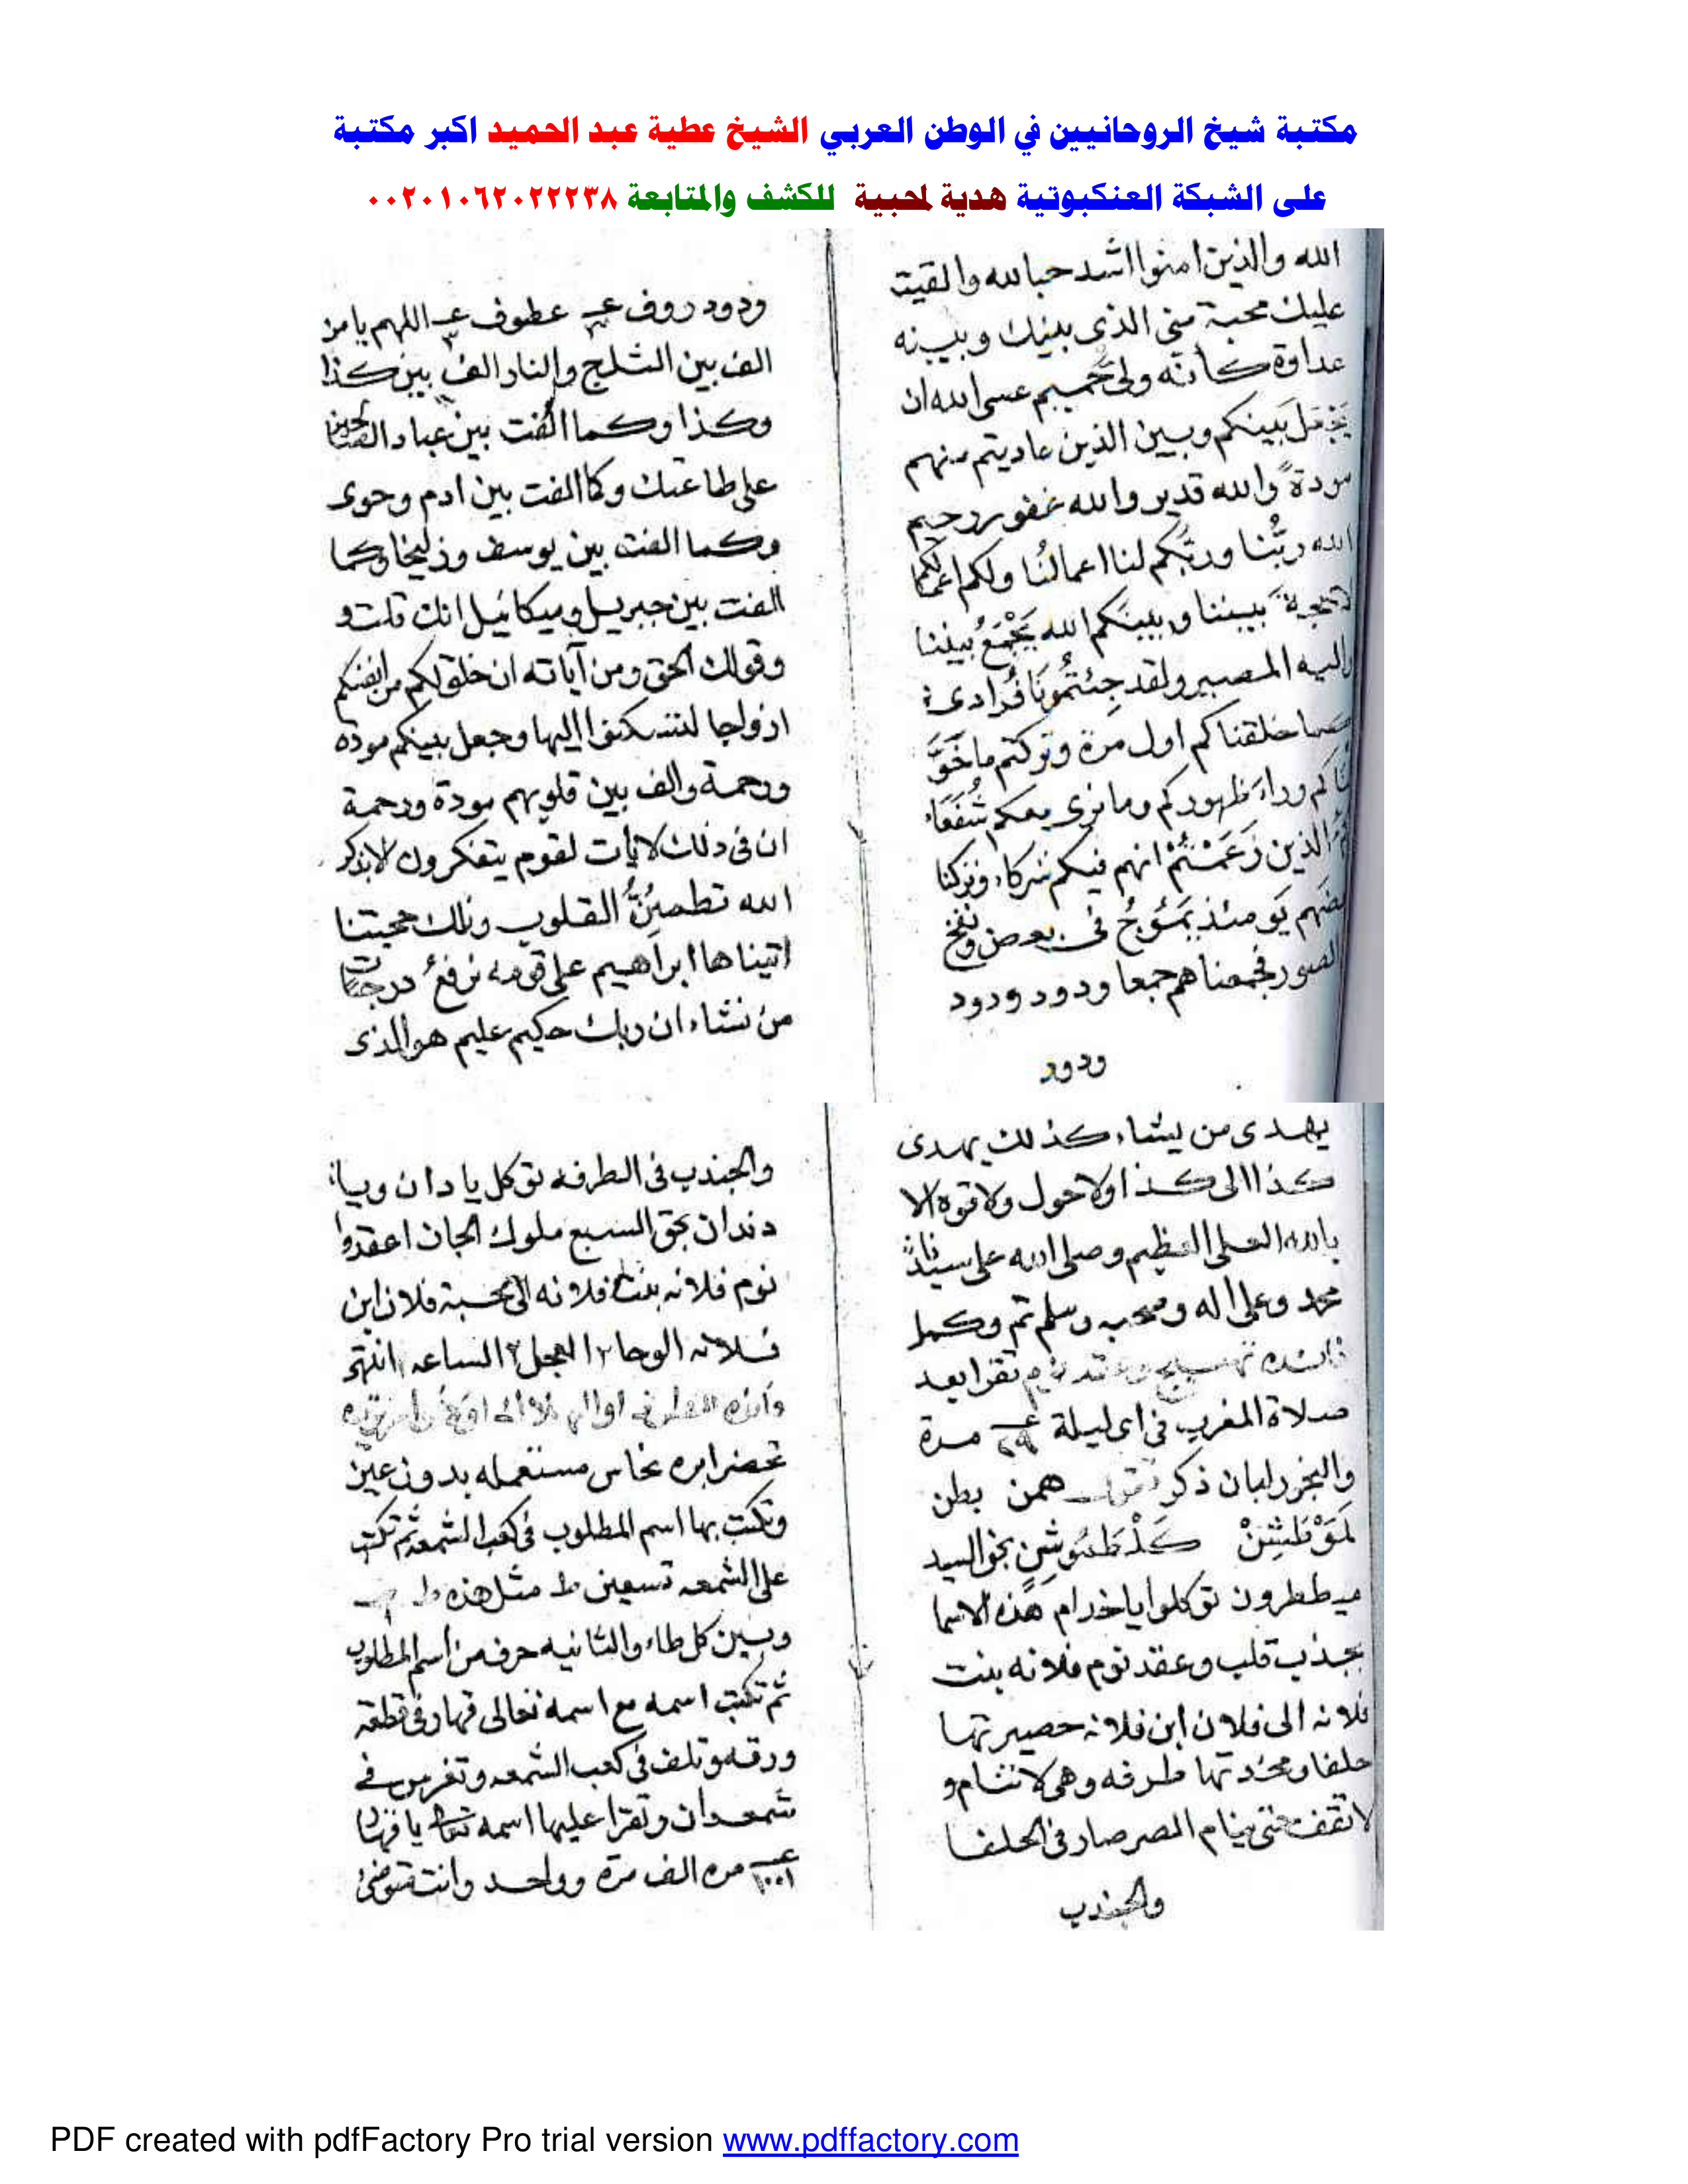 مكتبة شيخ الروحانيين في الوطن العربي الشيخ عطية عبد الحميد اكبر مكتبة
على الشبكة العنكبوتية هدية لمحبية للكشف والمتابعة ٠٠٢٠١٠٦٢٠٢٢٢٣٨
الله والذين امنوا اشد حبا لله والقيت
عليك محبة منى الذى بينك وبينه
عداوة كأنه ولى حميم عسى الله ان
يجعل بينكم وبين الذين عاديتم منهم
مودةً والله قدير والله غفور رحيم
الله ربُّنا وربُّكم لنا اعمالنُا ولكم اعمالكم
لاحجة بيننا وبينكم الله يَجْمَعُ بيننا
واليه المصير ولقد جِئتُمُونَا فُرَادى
كما خلقناكم اول مرة وتركتم ما خَوَّ
لنَاكم وراءَ ظهوركم وما نرى معكم شُفَعَاء
كُمُ الذين زَعَمْتُمْ انهم فيكم شركاء وتركنا
بعضَهم يَومئذ يَمُوجُ فى بعض ونُفخ
فى الصور فجمعناهم جمعا ودود ودود
ودود
ودود روف ٣ عطوف ٣ اللهم يا من
الف بين الثلج والنار الف بين كذا
وكذا وكما الفت بين عبادك الصالحين
على طاعتك وكما الفت بين ادم وحوى
وكما الفت بين يوسف وزليخا وكما
الفت بين جبريل وميكائيل انك قلت و
وقولك الحق ومن آياته ان خلق لكم من انفسكم
ازواجا لتسكنوا اليها وجعل بينكم مودة
ورحمة والف بين قلوبهم مودة ورحمة
ان فى ذلك لايات لقوم يتفكرون الا بذكر
الله تطمئِنُّ القلوب وتلك حجتنا
اتيناها ابراهيم على قومه نرفعُ درجات
من نشاء ان ربك حكيم عليم هو الذى
يهدى من يشاء كذلك يهدى
كذا الى كذا ولا حول ولا قوة الا
بالله العلى العظيم وصلى الله على سيدنا
محمد وعلى اله وصحبه وسلم تم وكمل
فائده تهييج وعقد نوم تقرا بعد
صلاة المغرب فى اى ليلة ٤٩ مرة
والبخور لبان ذكر تقول همن بطن
لَمَوْطَشِنْ كَلْطَمُوشِنٍ بحق السيد
ميططرون توكلوا يا خدام هذه الاسما
بجذب قلب وعقد نوم فلانه بنت
فلانه الى فلان ابن فلانه حصيرتها
حلفا ومخدتها طرفه وهى لا تنام و
لا تقف حتى ينام المصر صار فى الحلفا
والجندب
والجندب فى الطرفه توكل يا دان ويا
دندان بحق السبع ملوك الجان اعقدوا
نوم فلانه بنت فلانه الى محبة فلان ابن
فلانه الوحا ٢ العجل ٢ الساعه ٢ انتهى
تحضر ابره نحاس مستعمله بدون عين
وتكتب بها اسم المطلوب فى كعب الشمعه ثم تكتب
على الشمعه تسعين ط مثل هذه ط
وبين كل طاء والثانيه حرف من اسم المطلوب
ثم تكتب اسمه مع اسمه تعالى قهار فى قطعة
ورقه وتلف فى كعب الشمعه وتغرس فى
شمعدان وتقرا عليها اسمه تعالى يا قهار
١٠٠١ مره الف مرة وواحد وانت متوضئ
PDF created with pdfFactory Pro trial version www.pdffactory.com